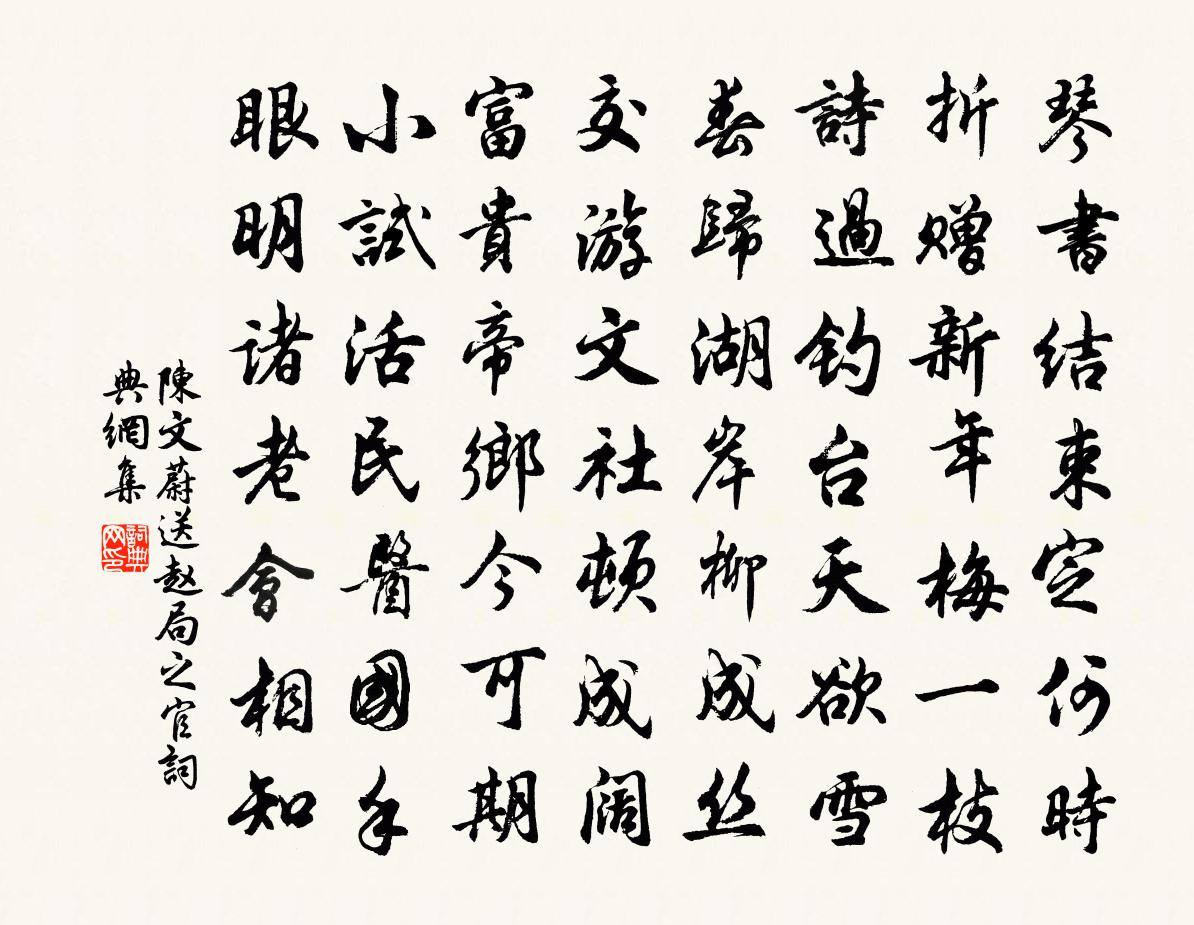 琴書結束定何時
折赠新年梅一枝
詩過钓台天欲雪
春歸湖岸柳成丝
交游文社頓成阔
富貴帝鄉今可期
小試活民醫國手
眼明诸老會相知
陳文蔚送赵局之官詞
典網集
詞典网印